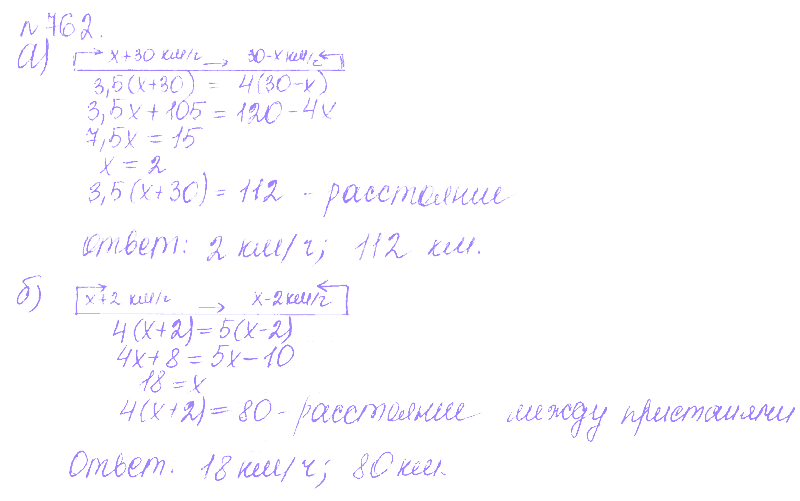 №762.
а) x+30 км/г → 30-x км/г
3,5(x+30) = 4(30-x)
3,5x+105 = 120-4x
7,5x = 15
x = 2
3,5(x+30) = 112 - расстояние
ответ: 2 км/ч; 112 км.
б) x+2 км/г → x-2 км/г
4(x+2) = 5(x-2)
4x+8 = 5x-10
18 = x
4(x+2) = 80 - расстояние между пристанями
Ответ. 18 км/ч; 80 км.